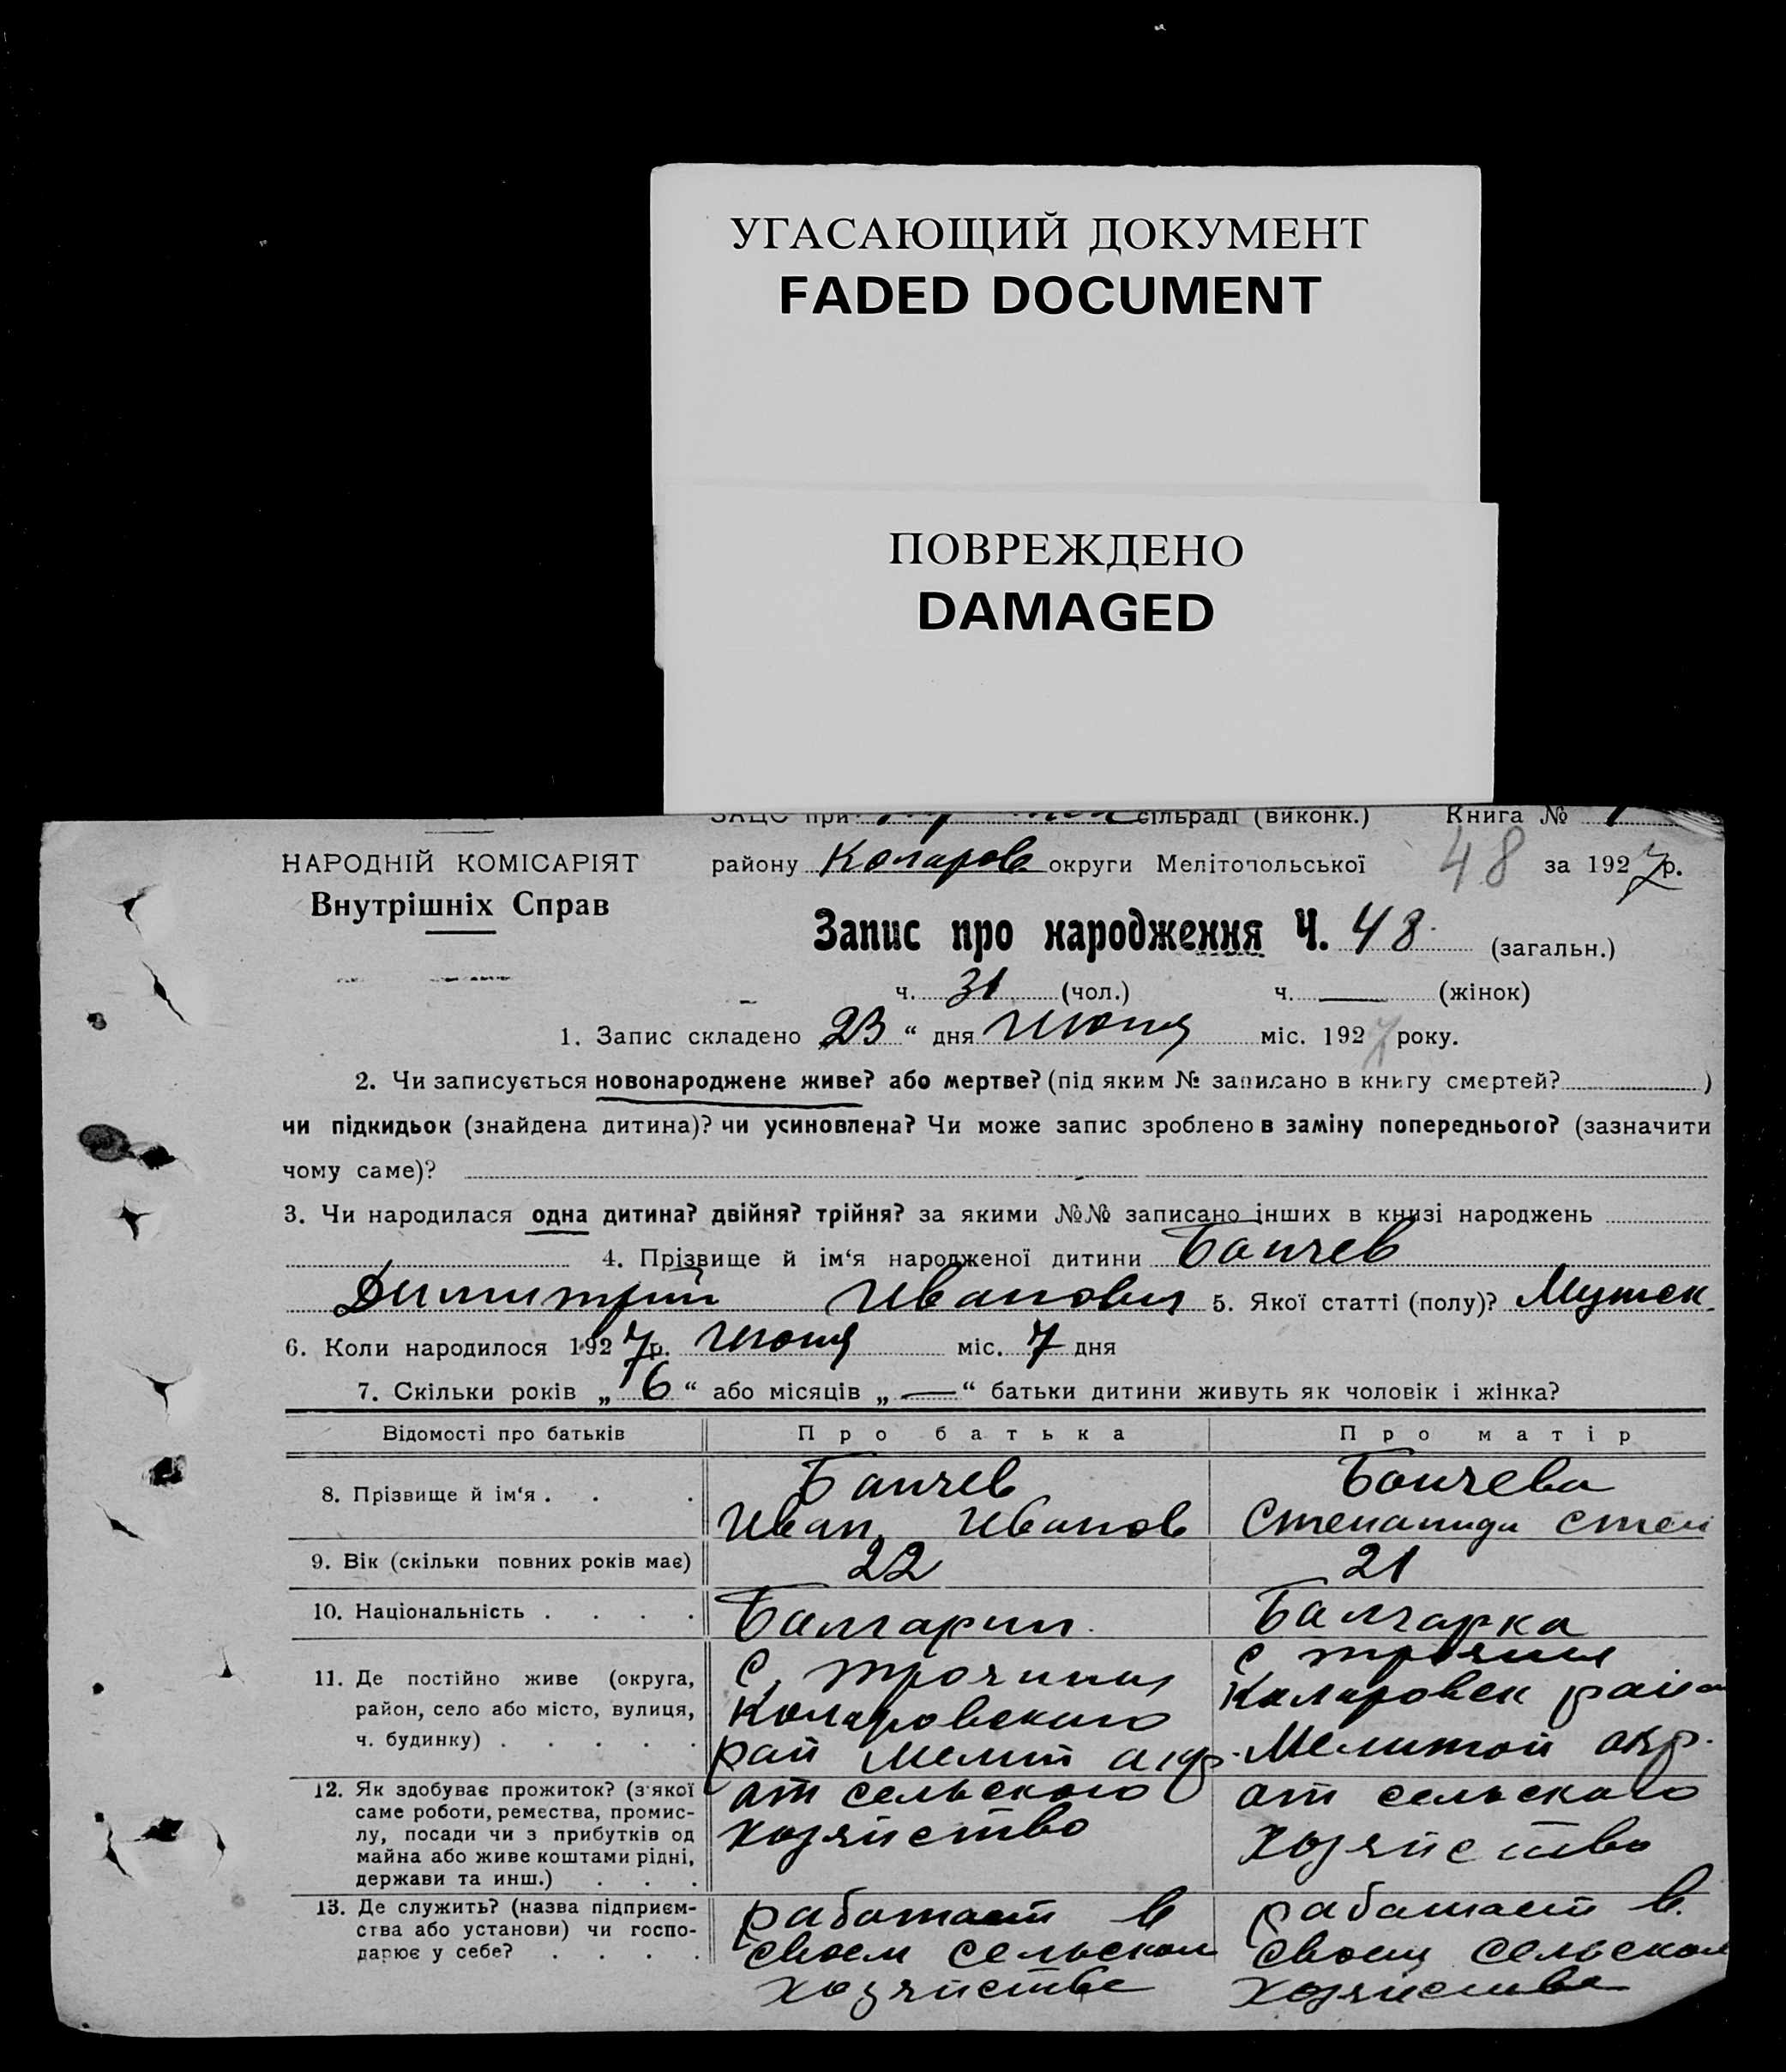 УГАСАЮЩИЙ ДОКУМЕНТ
FADED DOCUMENT
ПОВРЕЖДЕНО
DAMAGED
ЗАЦС при сільраді (виконк.) Книга №
НАРОДНІЙ КОМІСАРІЯТ
району Коларов округи Мелітопольської 48 за 1927 р.
Внутрішніх Справ
Запис про народження Ч. 48 (загальн.)
ч. 31 (чол.) ч. — (жінок)
1. Запис складено „23“ дня Июня міс. 1927 року.
2. Чи записується новонароджене живе? або мертве? (під яким № записано в книгу смертей? )
чи підкидьок (знайдена дитина)? чи усиновлена? Чи може запис зроблено в заміну попереднього? (зазначити
чому саме)?
3. Чи народилася одна дитина? двійня? трійня? за якими №№ записано інших в книзі народжень
4. Прізвище й ім‘я народженої дитини Банчев
Димитрий Иванович 5. Якої статті (полу)? Мужск.
6. Коли народилося 1927 р. Июня міс. 7 дня
7. Скільки років „6“ або місяців „—“ батьки дитини живуть як чоловік і жінка?
Відомості про батьків Про батька Про матір
8. Прізвище й ім‘я . . . Банчев Банчева
Иван Иванов Степанида Степ
9. Вік (скільки повних років має) 22 21
10. Національність . . . . Балгарин. Балгарка
11. Де постійно живе (округа, с. Трояния с Трояния
район, село або місто, вулиця, Коларовского Каларовск район
ч. будинку) . . . . . рай Мелит окр. Мелитоп окр.
12. Як здобуває прожиток? (з якої ат сельского ат сельскаго
саме роботи, ремества, промис-
лу, посади чи з прибутків од хозяйство хозяйство
майна або живе коштами рідні,
держави та инш.) . . .
13. Де служить? (назва підприєм- работает в работает в
ства або установи) чи госпо-
дарює у себе? . . . . своем сельском своем сельском
хозяйстве хозяйстве